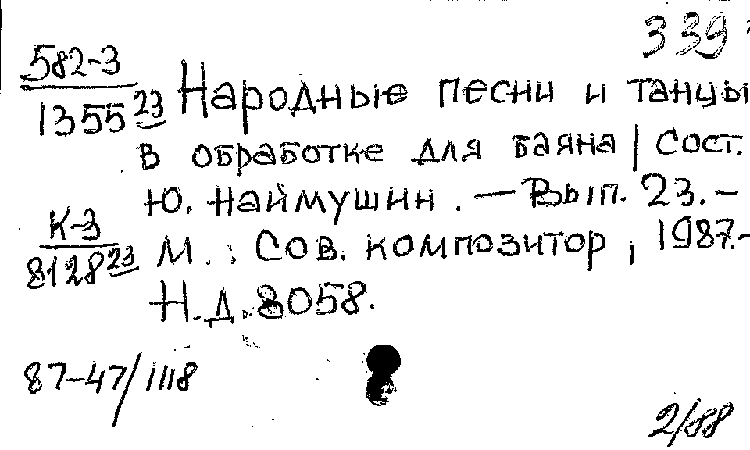 339
582-3
1355 23
Народные песни и танцы
в обработке для баяна / Сост.
Ю. Наймушин. — Вып. 23. —
К-3
8128 23
М. : Сов. композитор, 1987. -
Н.д. 8058.
87-47/1118
2/88